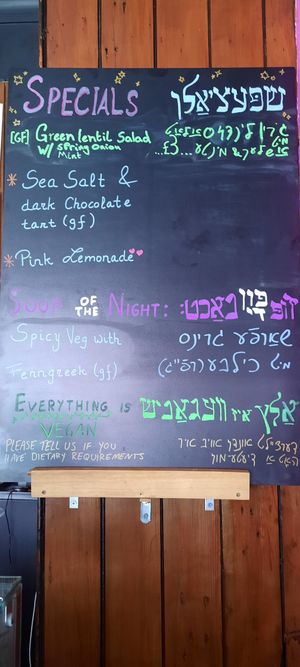 SPECIALS שפּעציאַלן
[GF] Green lentil Salad
W/ Spring Onion
Mint
מיט
* Sea Salt &
dark Chocolate
tart (gf)
* Pink Lemonade
SOUP OF THE NIGHT: זופּ פֿון
Spicy Veg with שאַרפֿע גרינס
Fenngreek (gf) מיט
EVERYTHING is אַלץ איז וועגאַניש
VEGAN
PLEASE TELL US IF YOU דערציילט אונדז אויב איר
HAVE DIETARY REQUIREMENTS האָט אַ